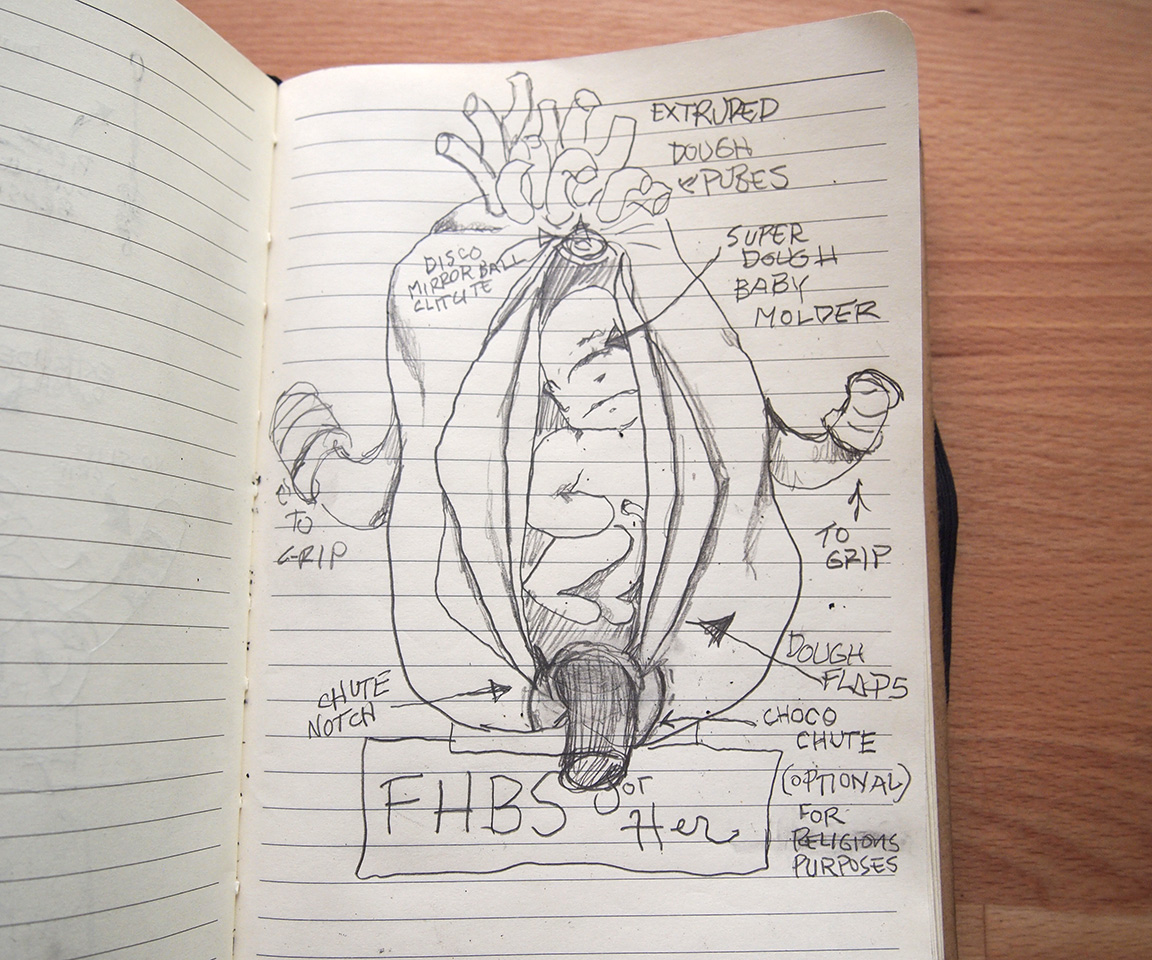 EXTRUDED
DOUGH
PUBES
DISCO
MIRROR BALL
SUPER
DOUGH
BABY
MOLDER
TO
GRIP
TO
GRIP
DOUGH
FLAPS
CHUTE
NOTCH
CHOCO
CHUTE
(OPTIONAL)
FOR
RELIGIOUS
PURPOSES
FHBS for
Her